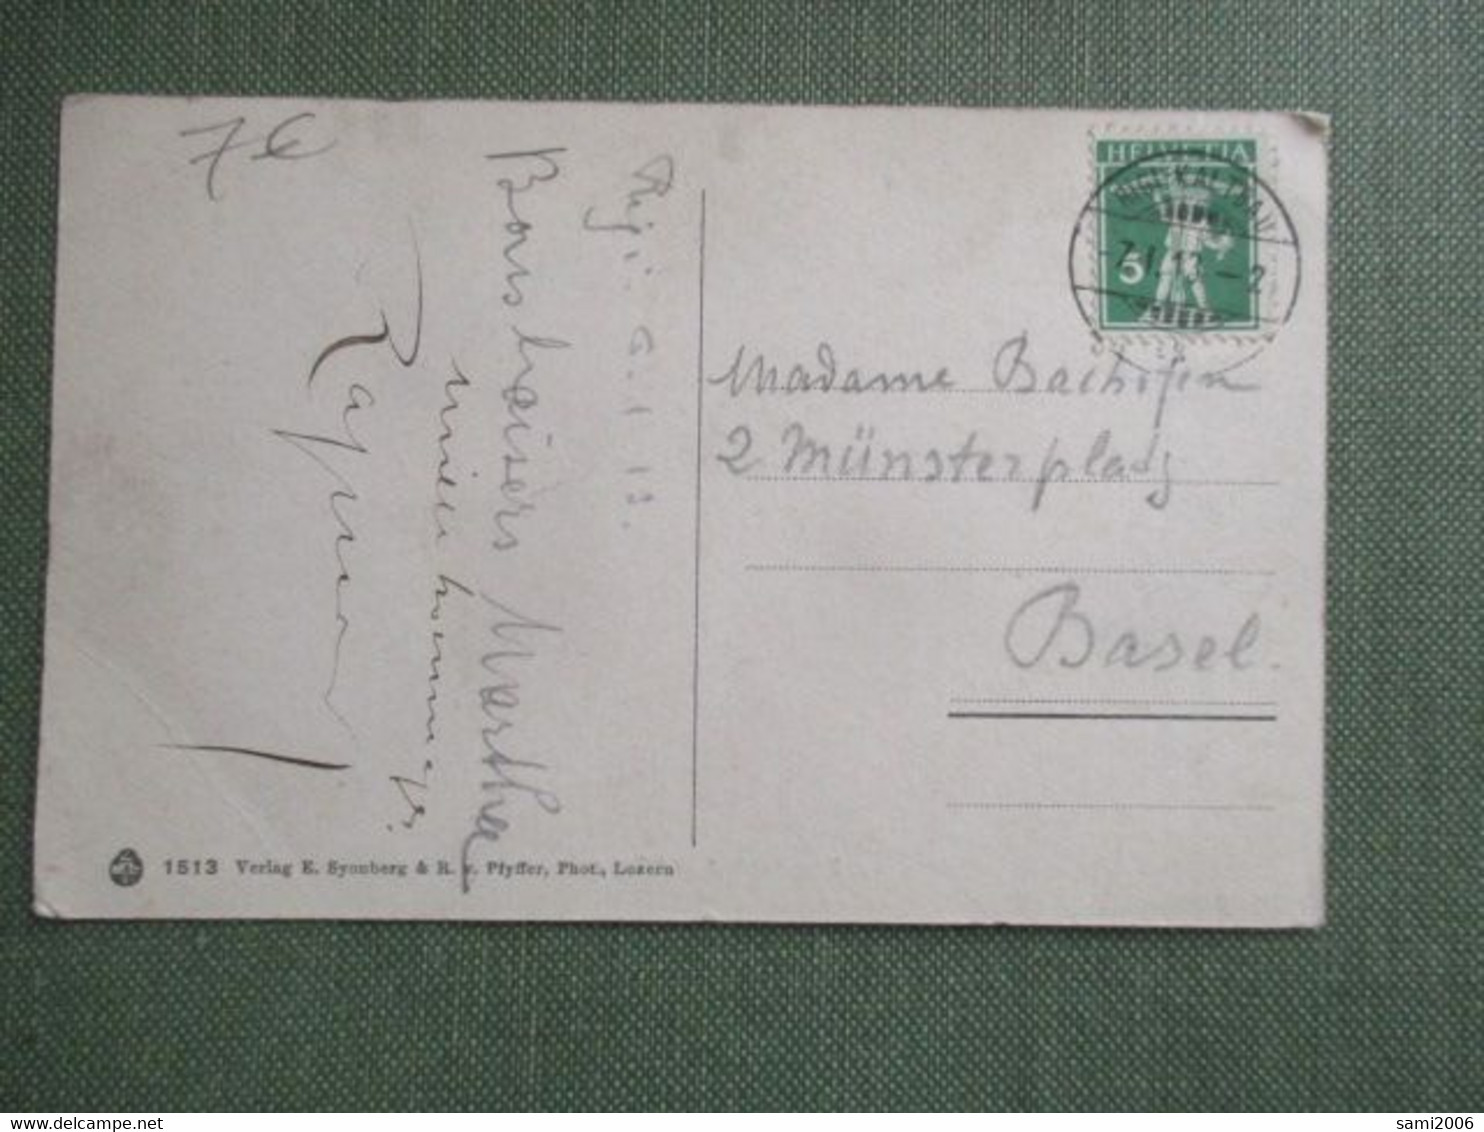 7€
Rigi. 6.1.13.
Bons baisers Martha
mille hommages
Raymond
HELVETIA
5
Madame Bachofen
2 Münsterplatz
Basel.
1513 Verlag E. Synnberg & R. v. Pfyffer, Phot., Luzern
sami2006